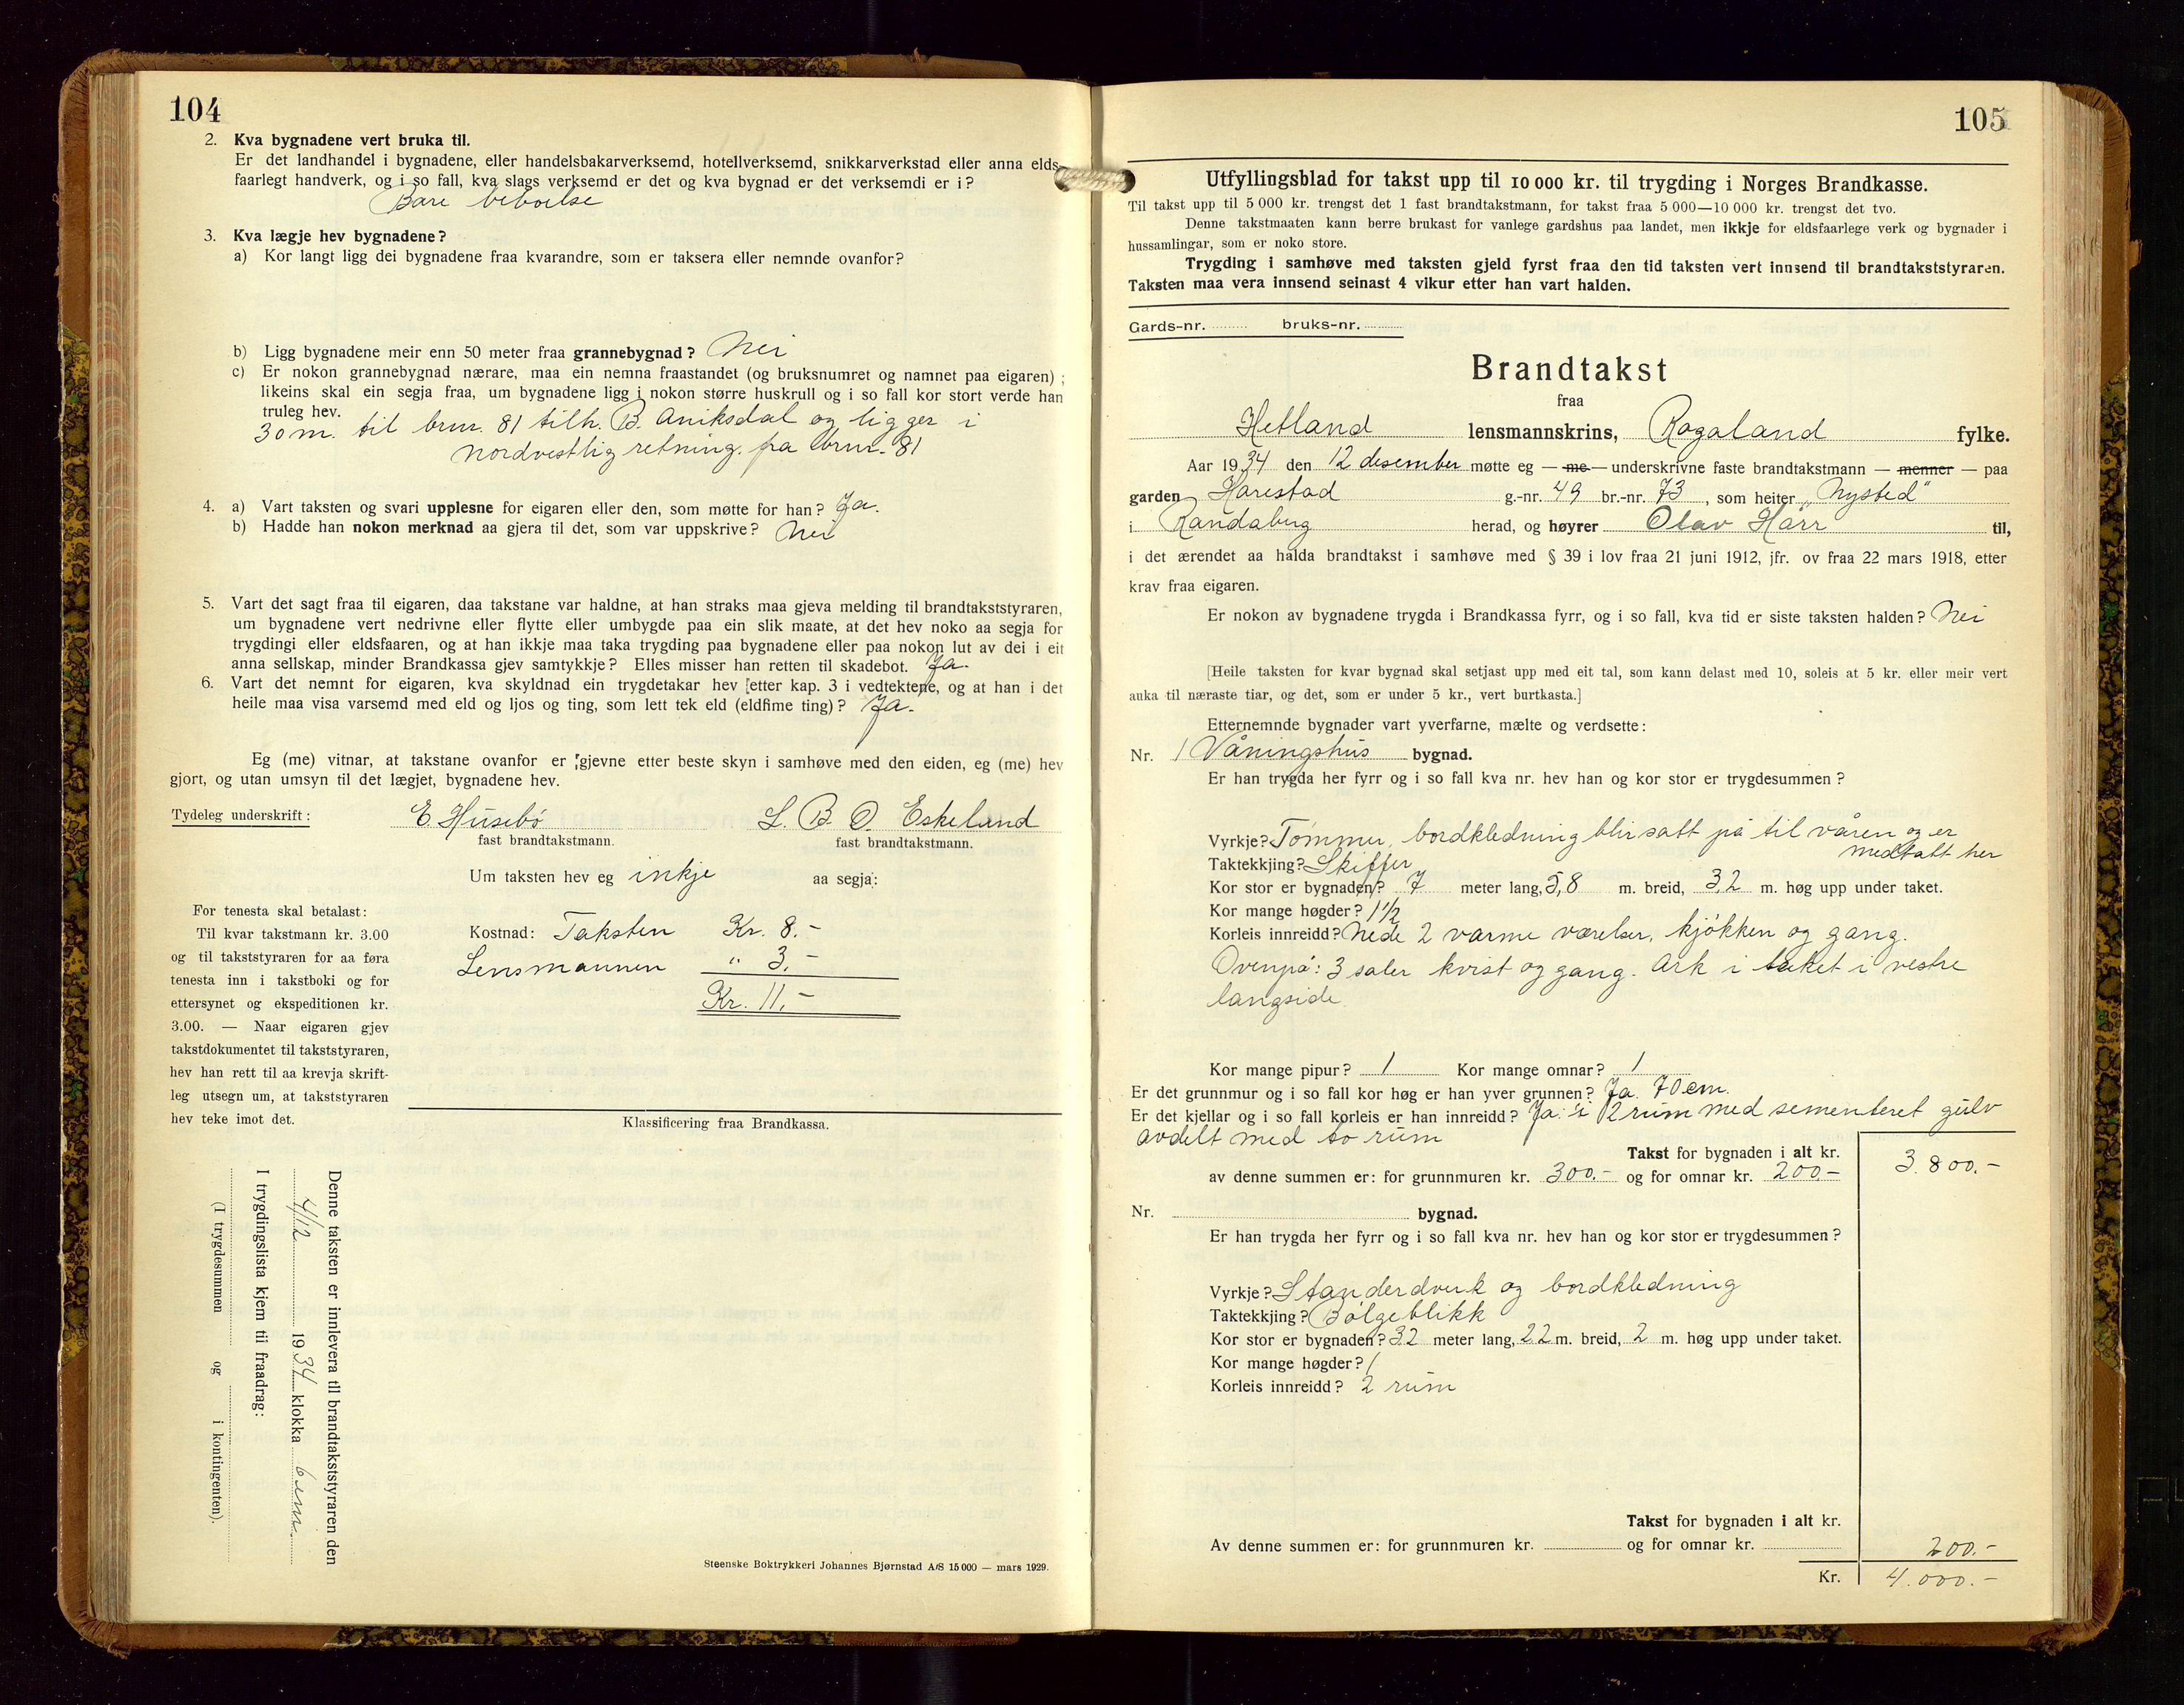 104
2. Kva bygnadene vert bruka til.
Er det landhandel i bygnadene, eller handelsbakarverksemd, hotellverksemd, snikkarverkstad eller anna elds-
faarlegt handverk, og i so fall, kva slags verksemd er det og kva bygnad er det verksemdi er i?
Bare beboelse
3. Kva lægje hev bygnadene?
a) Kor langt ligg dei bygnadene fraa kvarandre, som er taksera eller nemnde ovanfor?
b) Ligg bygnadene meir enn 50 meter fraa grannebygnad? Nei
c) Er nokon grannebygnad nærare, maa ein nemna fraastandet (og bruksnumret og namnet paa eigaren) ;
likeins skal ein segja fraa, um bygnadene ligg i nokon større huskrull og i so fall kor stort verde han
truleg hev.
30 m. til brnr. 81 tilh. B. Aniksdal og ligger i
nordvestlig retning. fra brnr. 81
4. a) Vart taksten og svari upplesne for eigaren eller den, som møtte for han? Ja.
b) Hadde han nokon merknad aa gjera til det, som var uppskrive? Nei
5. Vart det sagt fraa til eigaren, daa takstane var haldne, at han straks maa gjeva melding til brandtakststyraren,
um bygnadene vert nedrivne eller flytte eller umbygde paa ein slik maate, at det hev noko aa segja for
trygdingi eller eldsfaaren, og at han ikkje maa taka trygding paa bygnadene eller paa nokon lut av dei i eit
anna sellskap, minder Brandkassa gjev samtykkje? Elles misser han retten til skadebot. Ja.
6. Vart det nemnt for eigaren, kva skyldnad ein trygdetakar hev [etter kap. 3 i vedtektene, og at han i det
heile maa visa varsemd med eld og ljos og ting, som lett tek eld (eldfime ting)? Ja.
Eg (me) vitnar, at takstane ovanfor er gjevne etter beste skyn i samhøve med den eiden, eg (me) hev
gjort, og utan umsyn til det lægjet, bygnadene hev.
Tydeleg underskrift: E. Husebö L. B. O. Eskeland
fast brandtakstmann. fast brandtakstmann.
Um taksten hev eg inkje aa segja:
For tenesta skal betalast:
Til kvar takstmann kr. 3.00
og til takststyraren for aa føra
tenesta inn i takstboki og for
ettersynet og ekspeditionen kr.
3.00. — Naar eigaren gjev
takstdokumentet til takststyraren,
hev han rett til aa krevja skrift-
leg utsegn um, at takststyraren
hev teke imot det.
Kostnad: Taksten Kr. 8.-
Lensmannen " 3.-
Kr. 11,-
Klassificering fraa Brandkassa.
Denne taksten er innlevera til brandtakststyraren den
4/12 1934 klokka 6 em.
I trygdingslista kjem til fraadrag:
(I trygdesummen og i kontingenten).
Steenske Boktrykkeri Johannes Bjørnstad A/S 15000 — mars 1929.
105
Utfyllingsblad for takst upp til 10 000 kr. til trygding i Norges Brandkasse.
Til takst upp til 5 000 kr. trengst det 1 fast brandtakstmann, for takst fraa 5 000—10 000 kr. trengst det tvo.
Denne takstmaaten kann berre brukast for vanlege gardshus paa landet, men ikkje for eldsfaarlege verk og bygnader i
hussamlingar, som er noko store.
Trygding i samhøve med taksten gjeld fyrst fraa den tid taksten vert innsend til brandtakststyraren.
Taksten maa vera innsend seinast 4 vikur etter han vart halden.
Gards-nr. bruks-nr.
Brandtakst
fraa
Hetland lensmannskrins, Rogaland fylke.
Aar 1934 den 12 desember møtte eg — me — underskrivne faste brandtakstmann — menner — paa
garden Harestad g.-nr. 49 br.-nr. 73, som heiter „Nysted"
i Randaberg herad, og høyrer Olav Harr til,
i det ærendet aa halda brandtakst i samhøve med § 39 i lov fraa 21 juni 1912, jfr. ov fraa 22 mars 1918, etter
krav fraa eigaren.
Er nokon av bygnadene trygda i Brandkassa fyrr, og i so fall, kva tid er siste taksten halden? Nei
[Heile taksten for kvar bygnad skal setjast upp med eit tal, som kann delast med 10, soleis at 5 kr. eller meir vert
auka til næraste tiar, og det, som er under 5 kr., vert burtkasta.]
Etternemnde bygnader vart yverfarne, mælte og verdsette:
Nr. 1 Våningshus bygnad.
Er han trygda her fyrr og i so fall kva nr. hev han og kor stor er trygdesummen?
Vyrkje? Tömmer, bordkledning blir satt på til våren og er
medtatt her
Taktekkjing? Skiffer
Kor stor er bygnaden? 7 meter lang, 5,8 m. breid, 3,2 m. høg upp under taket.
Kor mange høgder? 1 1/2
Korleis innreidd? Nede 2 varme værelser, kjökken og gang.
Ovenpå: 3 saler kvist og gang. Ark i taket i vestre
langside.
Kor mange pipur? 1 Kor mange omnar? 1
Er det grunnmur og i so fall kor høg er han yver grunnen? Ja. 70 cm.
Er det kjellar og i so fall korleis er han innreidd? Ja. i 2 rum med sementeret gulv
avdelt med to rum
Takst for bygnaden i alt kr. 3.800.-
av denne summen er: for grunnmuren kr. 300.- og for omnar kr. 200-
Nr. bygnad.
Er han trygda her fyrr og i so fall kva nr. hev han og kor stor er trygdesummen?
Vyrkje? Standerdverk og bordkledning
Taktekkjing? Bölgeblikk
Kor stor er bygnaden? 3,2 meter lang, 2,2 m. breid, 2 m. høg upp under taket.
Kor mange høgder? 1
Korleis innreidd? 2 rum
Takst for bygnaden i alt kr.
Av denne summen er: for grunnmuren kr. og for omnar kr. 200.-
Kr. 4.000.-